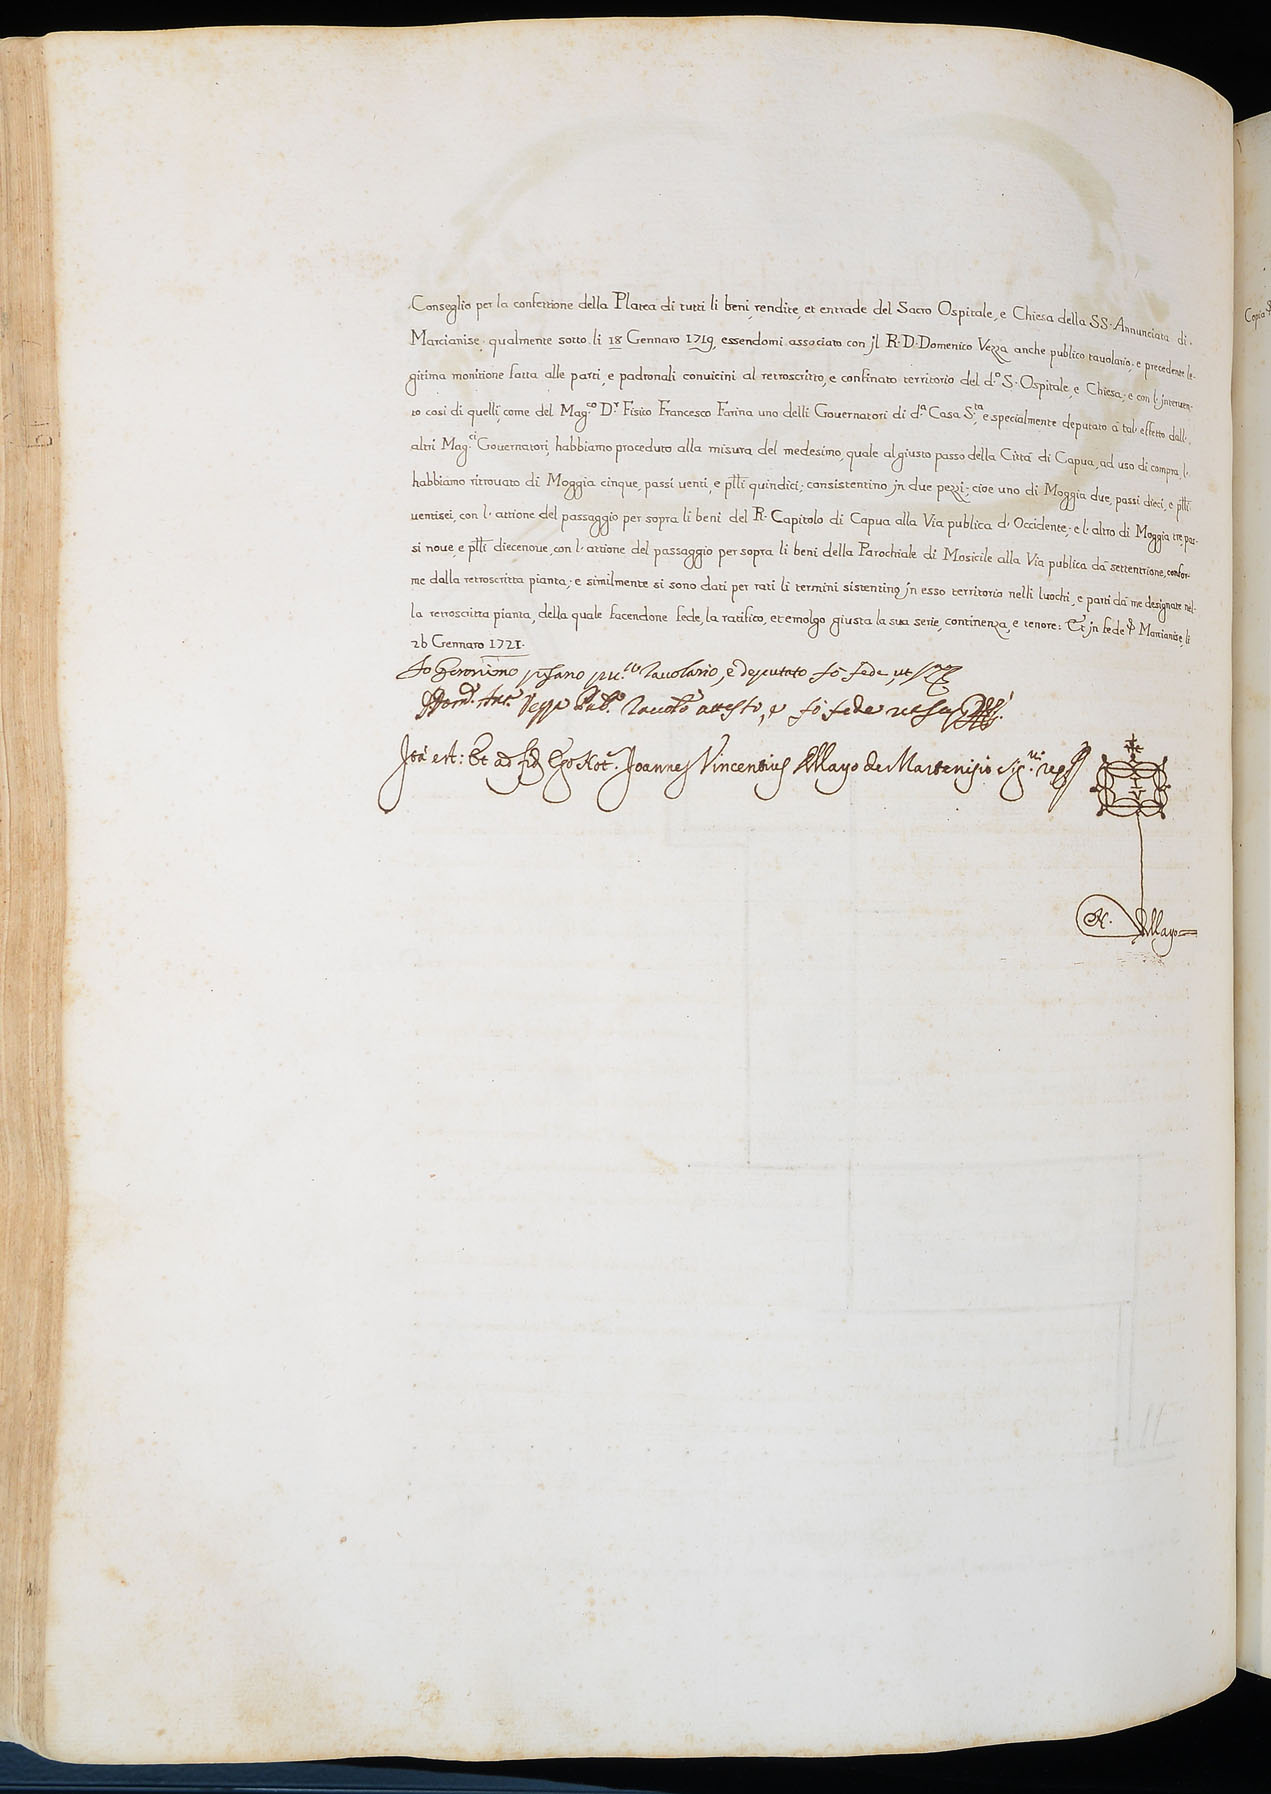 Conseglio per la confettione della Platea di tutti li beni, rendite, et entrade del Sacro Ospitale, e Chiesa della SS. Annunciata di
Marcianise, qualmente sotto li 18 Gennaro 1719, essendomi associato con jl R. D. Domenico Vezza anche publico tauolario, e precedente le-
gitima monitione fatta alle parti, e padronali conuicini al retroscritto, e confinato territorio del d.º S. Ospitale, e Chiesa, e con l'jnteruen-
to cosi di quelli, come del Mag.co D.r Fisico Francesco Farina uno delli Gouernatori di d.a Casa S.ta, e specialmente deputato à tal' effetto dall'
altri Mag.ci Gouernatori, habbiamo proceduto alla misura del medesimo, quale al giusto passo della Città di Capua, ad uso di compra, l'
habbiamo ritrouato di Moggia cinque, passi uenti, e ptti quindici; consistentino jn due pezzi; cioe uno di Moggia due, passi dieci, e ptti
uentisei, con l'attione del passaggio per sopra li beni del R. Capitolo di Capua alla Via publica d'Occidente; e l'altro di Moggia tre, pas-
si noue, e ptti diecenoue, con l'attione del passaggio per sopra li beni della Parochiale di Mosicile alla Via publica dà settentrione, confor-
me dalla retroscritta pianta; e similmente si sono dati per rati li termini sistentino jn esso territorio nelli luochi, e parti dà me designate nel-
la retroscritta pianta, della quale facendone fede, la ratifico, et emolgo giusta la sua serie, continenza, e tenore: Et jn fede Marcianise, li
26 Gennaro 1721.
Io Geronimo pisano pu.co Tauolario, e deputato fò fede, ut
Vezza Pub.º attesto, e fò fede ut
Ità est: Et ad fid Ego Not. Joannes Vincentius Mayo de Martenisio
I V
N. Mayo
Copia